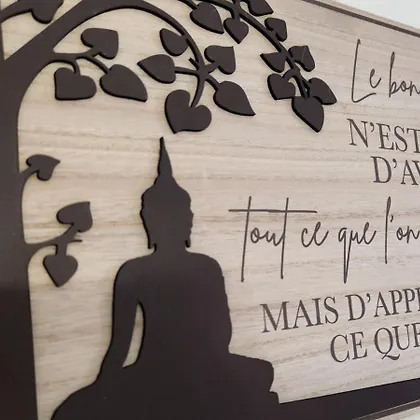 Le bon
N'EST
D'AV
tout ce que l'on
MAIS D'APP
CE QUE